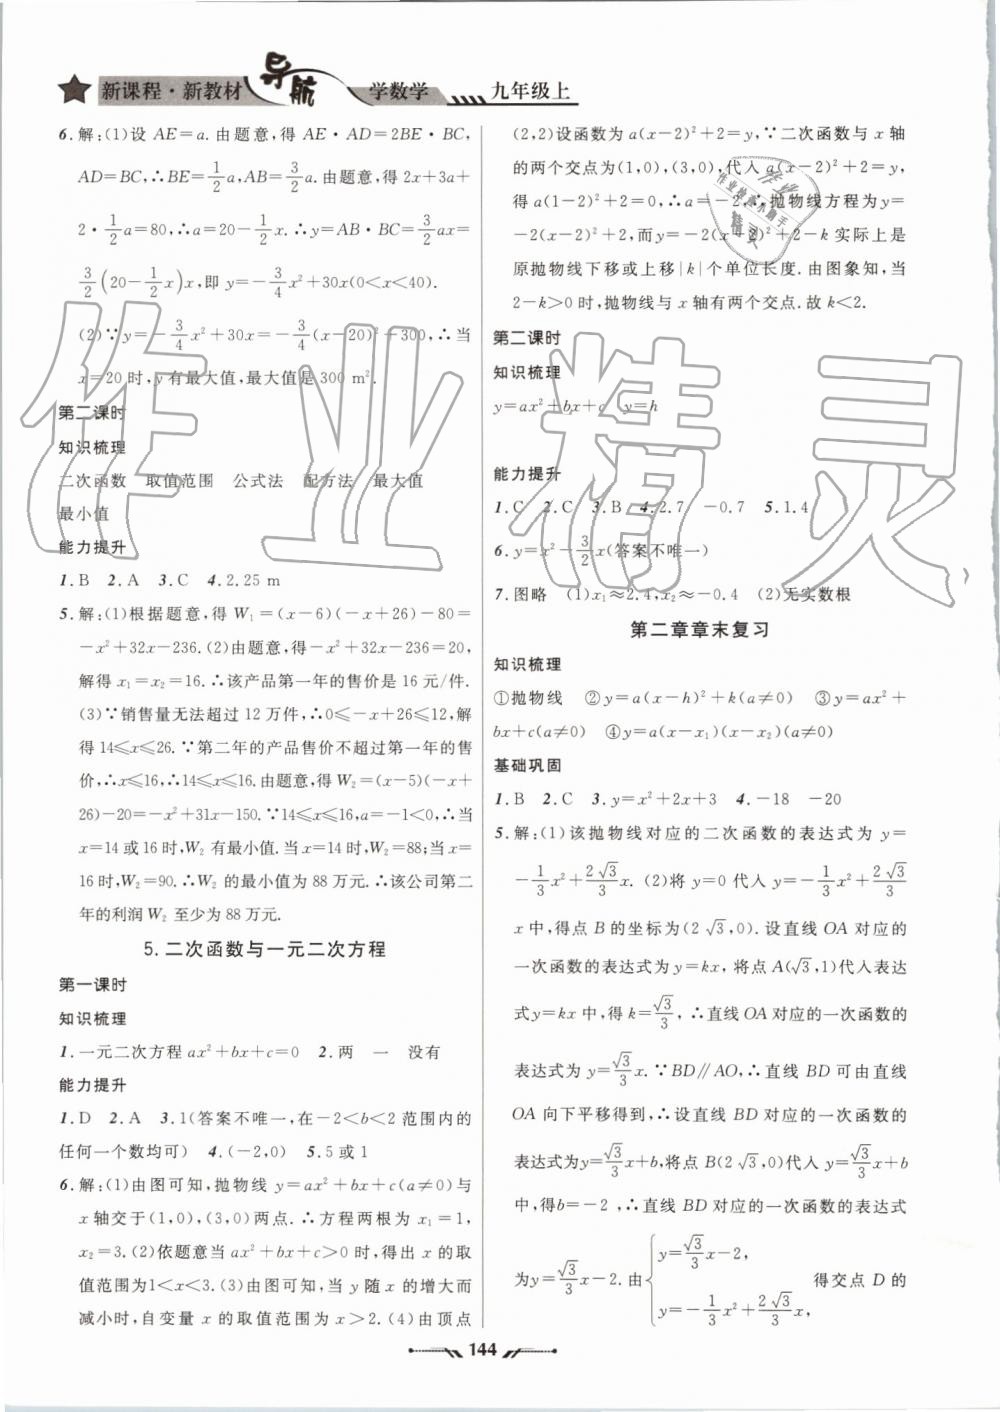 新课程·新教材 导航 学数学 九年级上
6.解:(1)设 AE=a.由题意,得 AE·AD=2BE·BC,
AD=BC,∴BE=1/2a,AB=3/2a.由题意,得2x+3a+
2·1/2a=80,∴a=20-1/2x.∴y=AB·BC=3/2ax=
3/2(20-1/2x)x,即 y=-3/4x²+30x(0<x<40).
(2)∵y=-3/4x²+30x=-3/4(x-20)²+300,∴当
x=20时,y有最大值,最大值是300 m².
第二课时
知识梳理
二次函数 取值范围 公式法 配方法 最大值
最小值
能力提升
1.B 2.A 3.C 4.2.25 m
5.解:(1)根据题意,得 W₁=(x-6)(-x+26)-80=
-x²+32x-236.(2)由题意,得-x²+32x-236=20,
解得 x₁=x₂=16.∴该产品第一年的售价是 16 元/件.
(3)∵销售量无法超过 12 万件,∴0⩽-x+26⩽12,解
得14⩽x⩽26.∵第二年的产品售价不超过第一年的售
价,∴x⩽16,∴14⩽x⩽16.由题意,得 W₂=(x-5)(-x+
26)-20=-x²+31x-150.∵14⩽x⩽16,a=-1<0,∴当
x=14或16时,W₂ 有最小值.当x=14时,W₂=88;当x=
16时,W₂=90.∴W₂ 的最小值为 88 万元.∴该公司第二
年的利润W₂ 至少为88万元.
5.二次函数与一元二次方程
第一课时
知识梳理
1.一元二次方程 ax²+bx+c=0 2.两 一 没有
能力提升
1.D 2.A 3.1(答案不唯一,在-2<b<2 范围内的
任何一个数均可) 4.(-2,0) 5.5或1
6.解:(1)由图可知,抛物线 y=ax²+bx+c(a≠0)与
x轴交于(1,0),(3,0)两点.∴方程两根为 x₁=1,
x₂=3.(2)依题意当 ax²+bx+c>0 时,得出 x 的取
值范围为1<x<3.(3)由图可知,当 y 随 x 的增大而
减小时,自变量 x 的取值范围为 x>2.(4)由顶点
(2,2)设函数为 a(x-2)²+2=y,∵二次函数与 x 轴
的两个交点为(1,0),(3,0),代入 a(x-2)²+2=y,
得 a(1-2)²+2=0,∴a=-2,∴抛物线方程为y=
-2(x-2)²+2,而y=-2(x-2)²+2-k 实际上是
原抛物线下移或上移|k|个单位长度.由图象知,当
2-k>0时,抛物线与 x 轴有两个交点.故 k<2.
第二课时
知识梳理
y=ax²+bx+c y=h
能力提升
1.C 2.C 3.B 4.2.7 -0.7 5.1.4
6.y=x²-3/2x(答案不唯一)
7.图略 (1)x₁≈2.4,x₂≈-0.4 (2)无实数根
第二章章末复习
知识梳理
①抛物线 ②y=a(x-h)²+k(a≠0) ③y=ax²+
bx+c(a≠0) ④y=a(x-x₁)(x-x₂)(a≠0)
基础巩固
1.B 2.C 3.y=x²+2x+3 4.-18 -20
5.解:(1)该抛物线对应的二次函数的表达式为 y=
-1/3x²+2√3/3x.(2)将 y=0 代入 y=-1/3x²+2√3/3
x中,得点 B 的坐标为(2√3,0).设直线 OA 对应的
一次函数的表达式为 y=kx,将点 A(√3,1)代入表达
式y=kx 中,得 k=√3/3,∴直线 OA 对应的一次函数的
表达式为 y=√3/3x.∵BD∥AO,∴直线 BD 可由直线
OA 向下平移得到,∴设直线 BD 对应的一次函数的
表达式为y=√3/3x+b,将点 B(2√3,0)代入 y=√3/3x+b
中,得b=-2,∴直线 BD 对应的一次函数的表达式
为y=√3/3x-2.由{y=√3/3x-2, y=-1/3x²+2√3/3x, 得交点 D 的
144
作业精灵